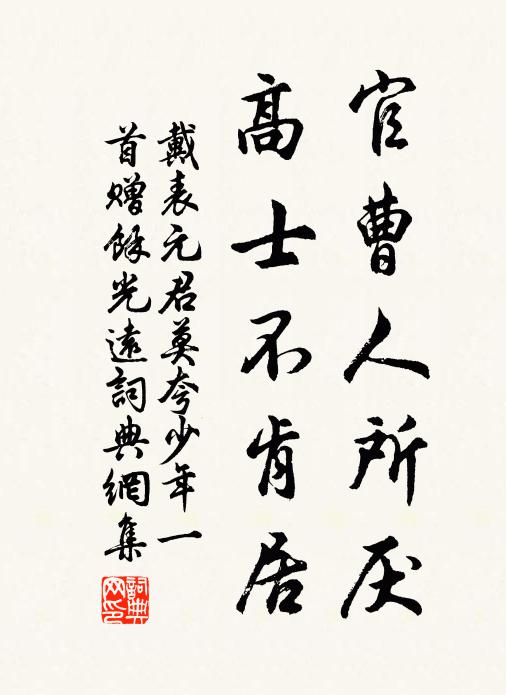 官曹人所厌
高士不肯居
戴表元君莫夸少年一
首赠余光远词典网集
词典网印